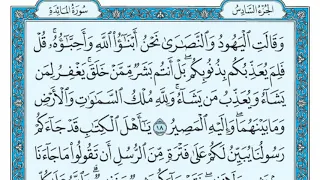 الجزء السادس سورة المائدة
وَقَالَتِ الْيَهُودُ وَالنَّصَارَىٰ نَحْنُ أَبْنَاؤُا اللَّهِ وَأَحِبَّاؤُهُ قُلْ
فَلِمَ يُعَذِّبُكُم بِذُنُوبِكُم بَلْ أَنتُم بَشَرٌ مِّمَّنْ خَلَقَ يَغْفِرُ لِمَن
يَشَاءُ وَيُعَذِّبُ مَن يَشَاءُ وَلِلَّهِ مُلْكُ السَّمَاوَاتِ وَالْأَرْضِ
وَمَا بَيْنَهُمَا وَإِلَيْهِ الْمَصِيرُ ١٨ يَا أَهْلَ الْكِتَابِ قَدْ جَاءَكُمْ
رَسُولُنَا يُبَيِّنُ لَكُمْ عَلَىٰ فَتْرَةٍ مِّنَ الرُّسُلِ أَن تَقُولُوا مَا جَاءَنَا